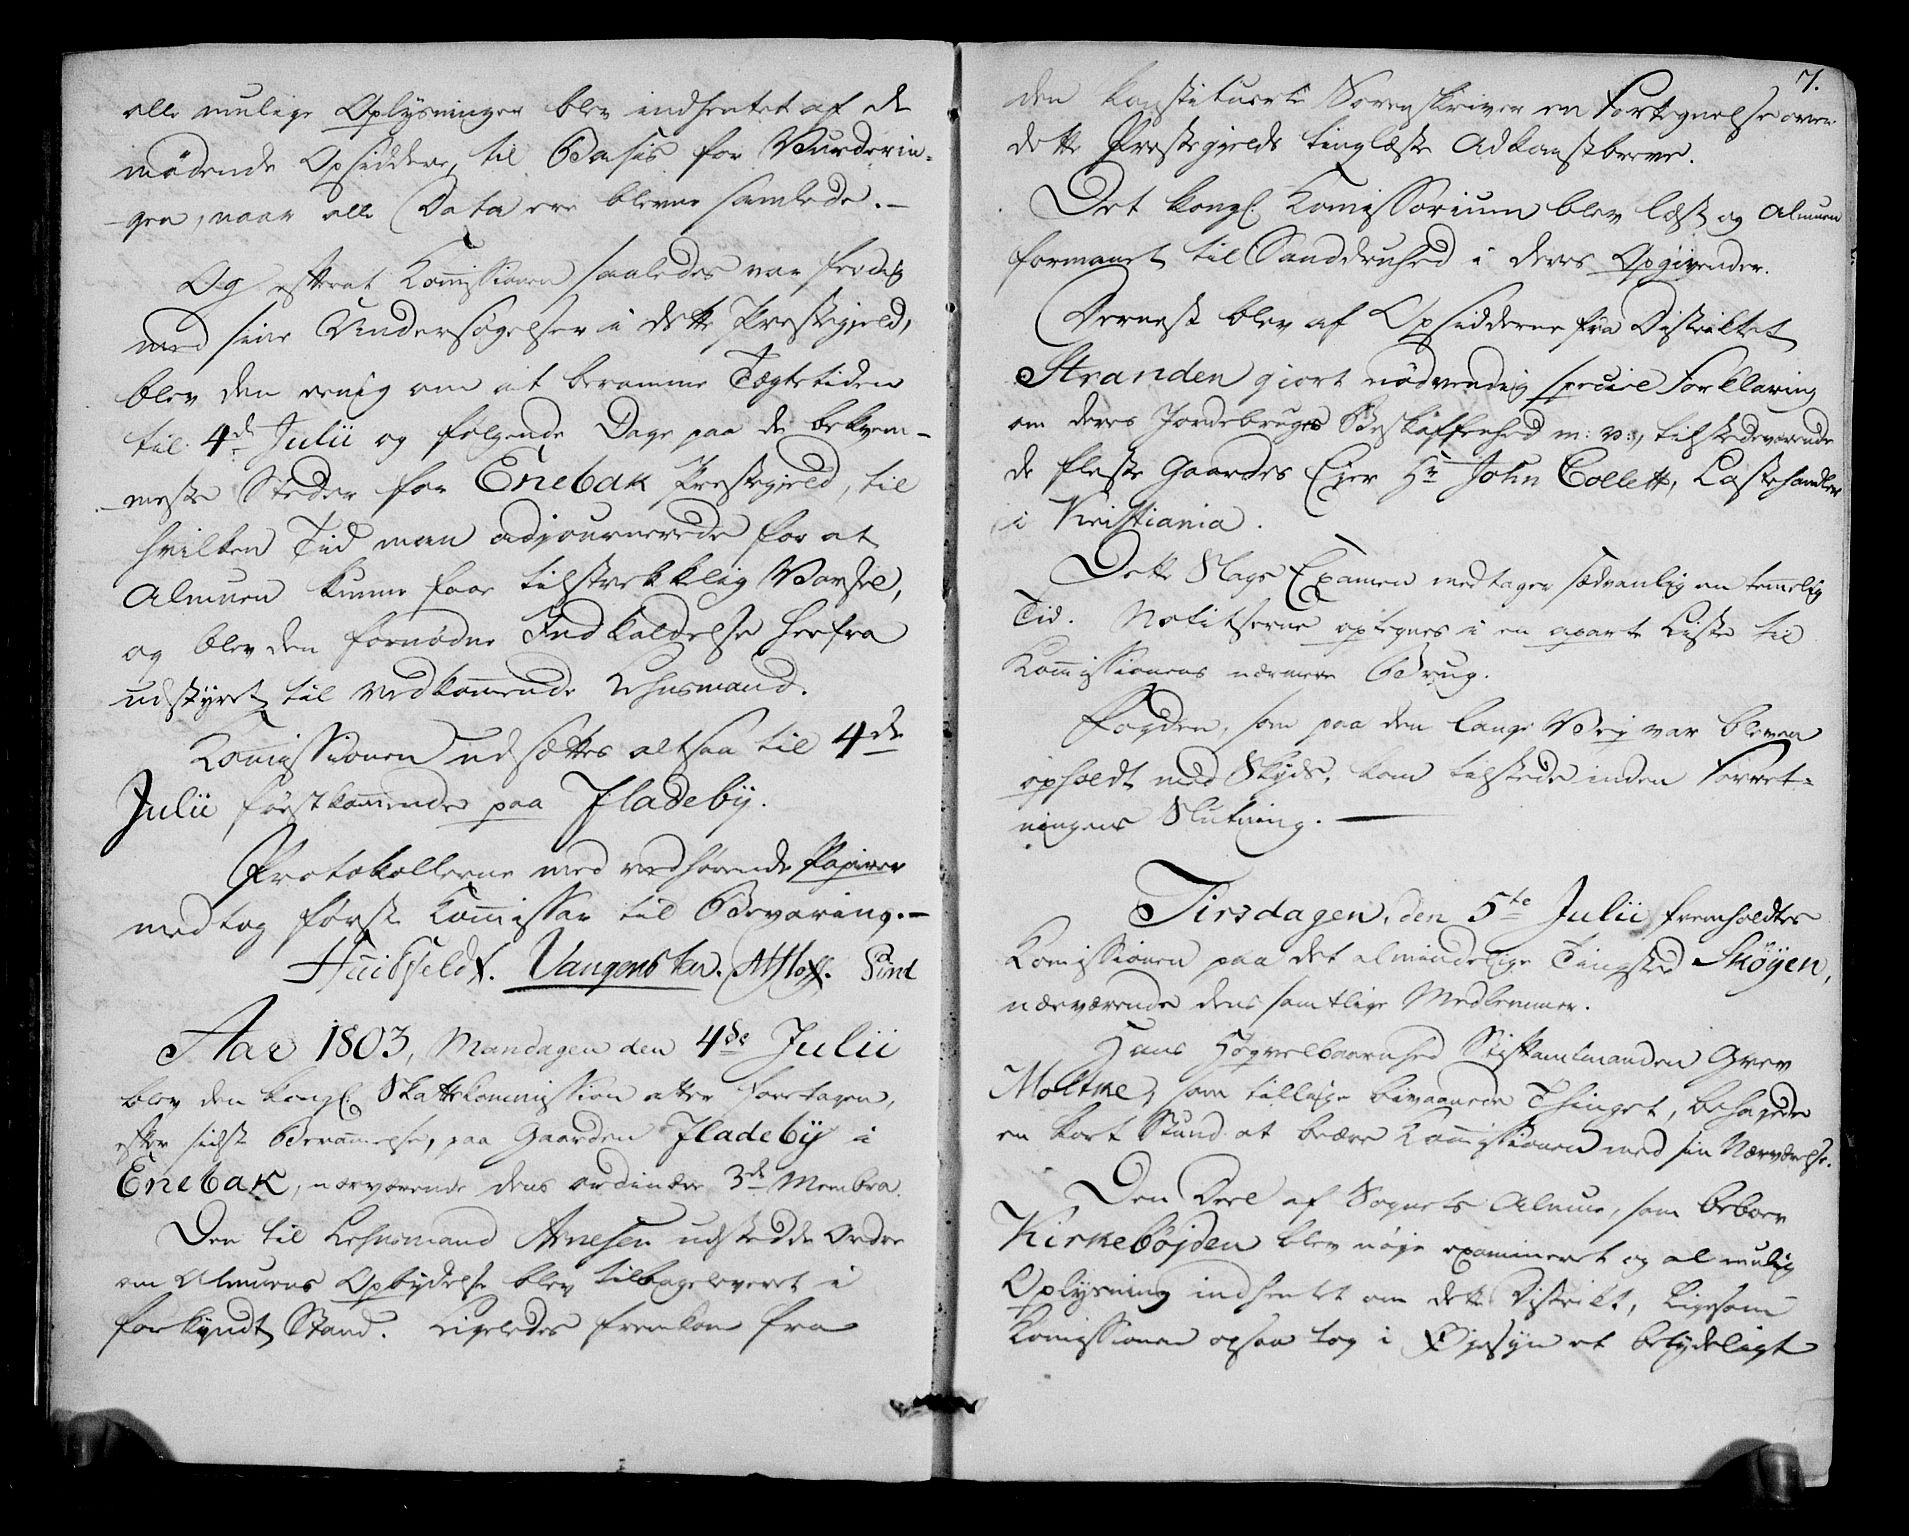 alle mulige Oplysninger blev indhentet af de
mødende Opsiddere, til Basis for Vurderin-
gen, naar alle Data ere blevne samlede. -
Og efterat Kom̅issionen saaledes var ferdig
med sine Undersøgelser i dette Prestegjeld,
blev den enig om at beramme Tægtetiden
til 4de Julii og følgende Dage paa de beqvem-
meste Steder for Enebak Prestegjeld, til
hvilken Tid man adjournerede for at
Almuen kunne faae tilstrekkelig Varsel,
og blev den fornødne Indkaldelse herfra
udstyret til vedkom̅ende Lehnsmand.
Kom̅issionen udsættes altsaa til 4de
Julii førstkom̅ende paa Fladebÿ.
Protokollerne med vedhørende Papirer
medtog første Kom̅issær til Bevaring. -
Huitfeldt. Vangensten. Sind
Aar 1803, Mandagen den 4de Julii
blev den kongl. Skattekommission atter foretagen,
efter sidste Beram̅else, paa Gaarden Fladebÿ i
Enebak, nærværende dens ordinære 3de Membra.
Den til Lehnsmand Arnesen udstedde Ordre
om Almuens Opbydelse blev tilbageleveret i
forkyndt Stand. Ligeledes fremkom fra
7.
den konstituerte Sorenskriver en Fortegnelse over
dette Prestegjelds tinglæste Adkomstbreve.
Det kongl. Kom̅issorium blev læst og Almuen
formanet til Sanddruhed i deres Opgivender.
Dernest blev af Opsidderne fra Distriktet
Stranden giort nødvendig speciel Forklaring
om deres Jordebruges Beskaffenhed m: v:, tilstedeværende
de fleste Gaardes Ejer Hr John Collett, Lasthandler
i Kristiania.
Dette Slags Examen medtager sædvanlig en temelig
Tid. Notitserne optegnes i en aparte Liste til
Kom̅issionens nærmere Brug.
Fogden, som paa den lange Vej var bleven
opholdt med Skyds, kom tilstede inden Forret-
ningens Slutning. -
Tirsdagen, den 5te Julii fremholdtes
Kom̅issionen paa det almindelige Tingsted Skøÿen,
nærværende dens samtlige Medlemmer.
Hans Høgvelbaarnhed Stiftamtmanden Grev
Moltke, som tillige bivaanede Thinget, behagede
en kort Stund at beære Kom̅issionen med sin Nærværelse.
Den Deel af Sognets Almue, som beboer
Kirkebøjden blev nøje examineret og al mulig
Oplysning indhentet om dette Distrikt, ligesom
Kom̅issionen ogsaa tog i Øjesÿn et betydeligt